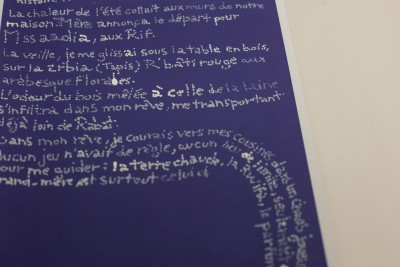 La chaleur de l'été collait aux murs de notre
maison. Mère annonça le départ pour
Mssaadia, aux Rif.
La veille, je me glissai sous la table en bois,
sur la zrbia (Tapis) R'bâti rouge aux
arabesque Florales.
L'odeur du bois mêlée à celle de la laine
s'infiltra dans mon rêve, me transportant
déjà loin de Rabat.
Dans mon rêve, je courais vers mes cousins, dans un
aucun jeu n'avait de règle, aucun
pour me guider : la terre chaude, la
rand-mère est surtout celui d